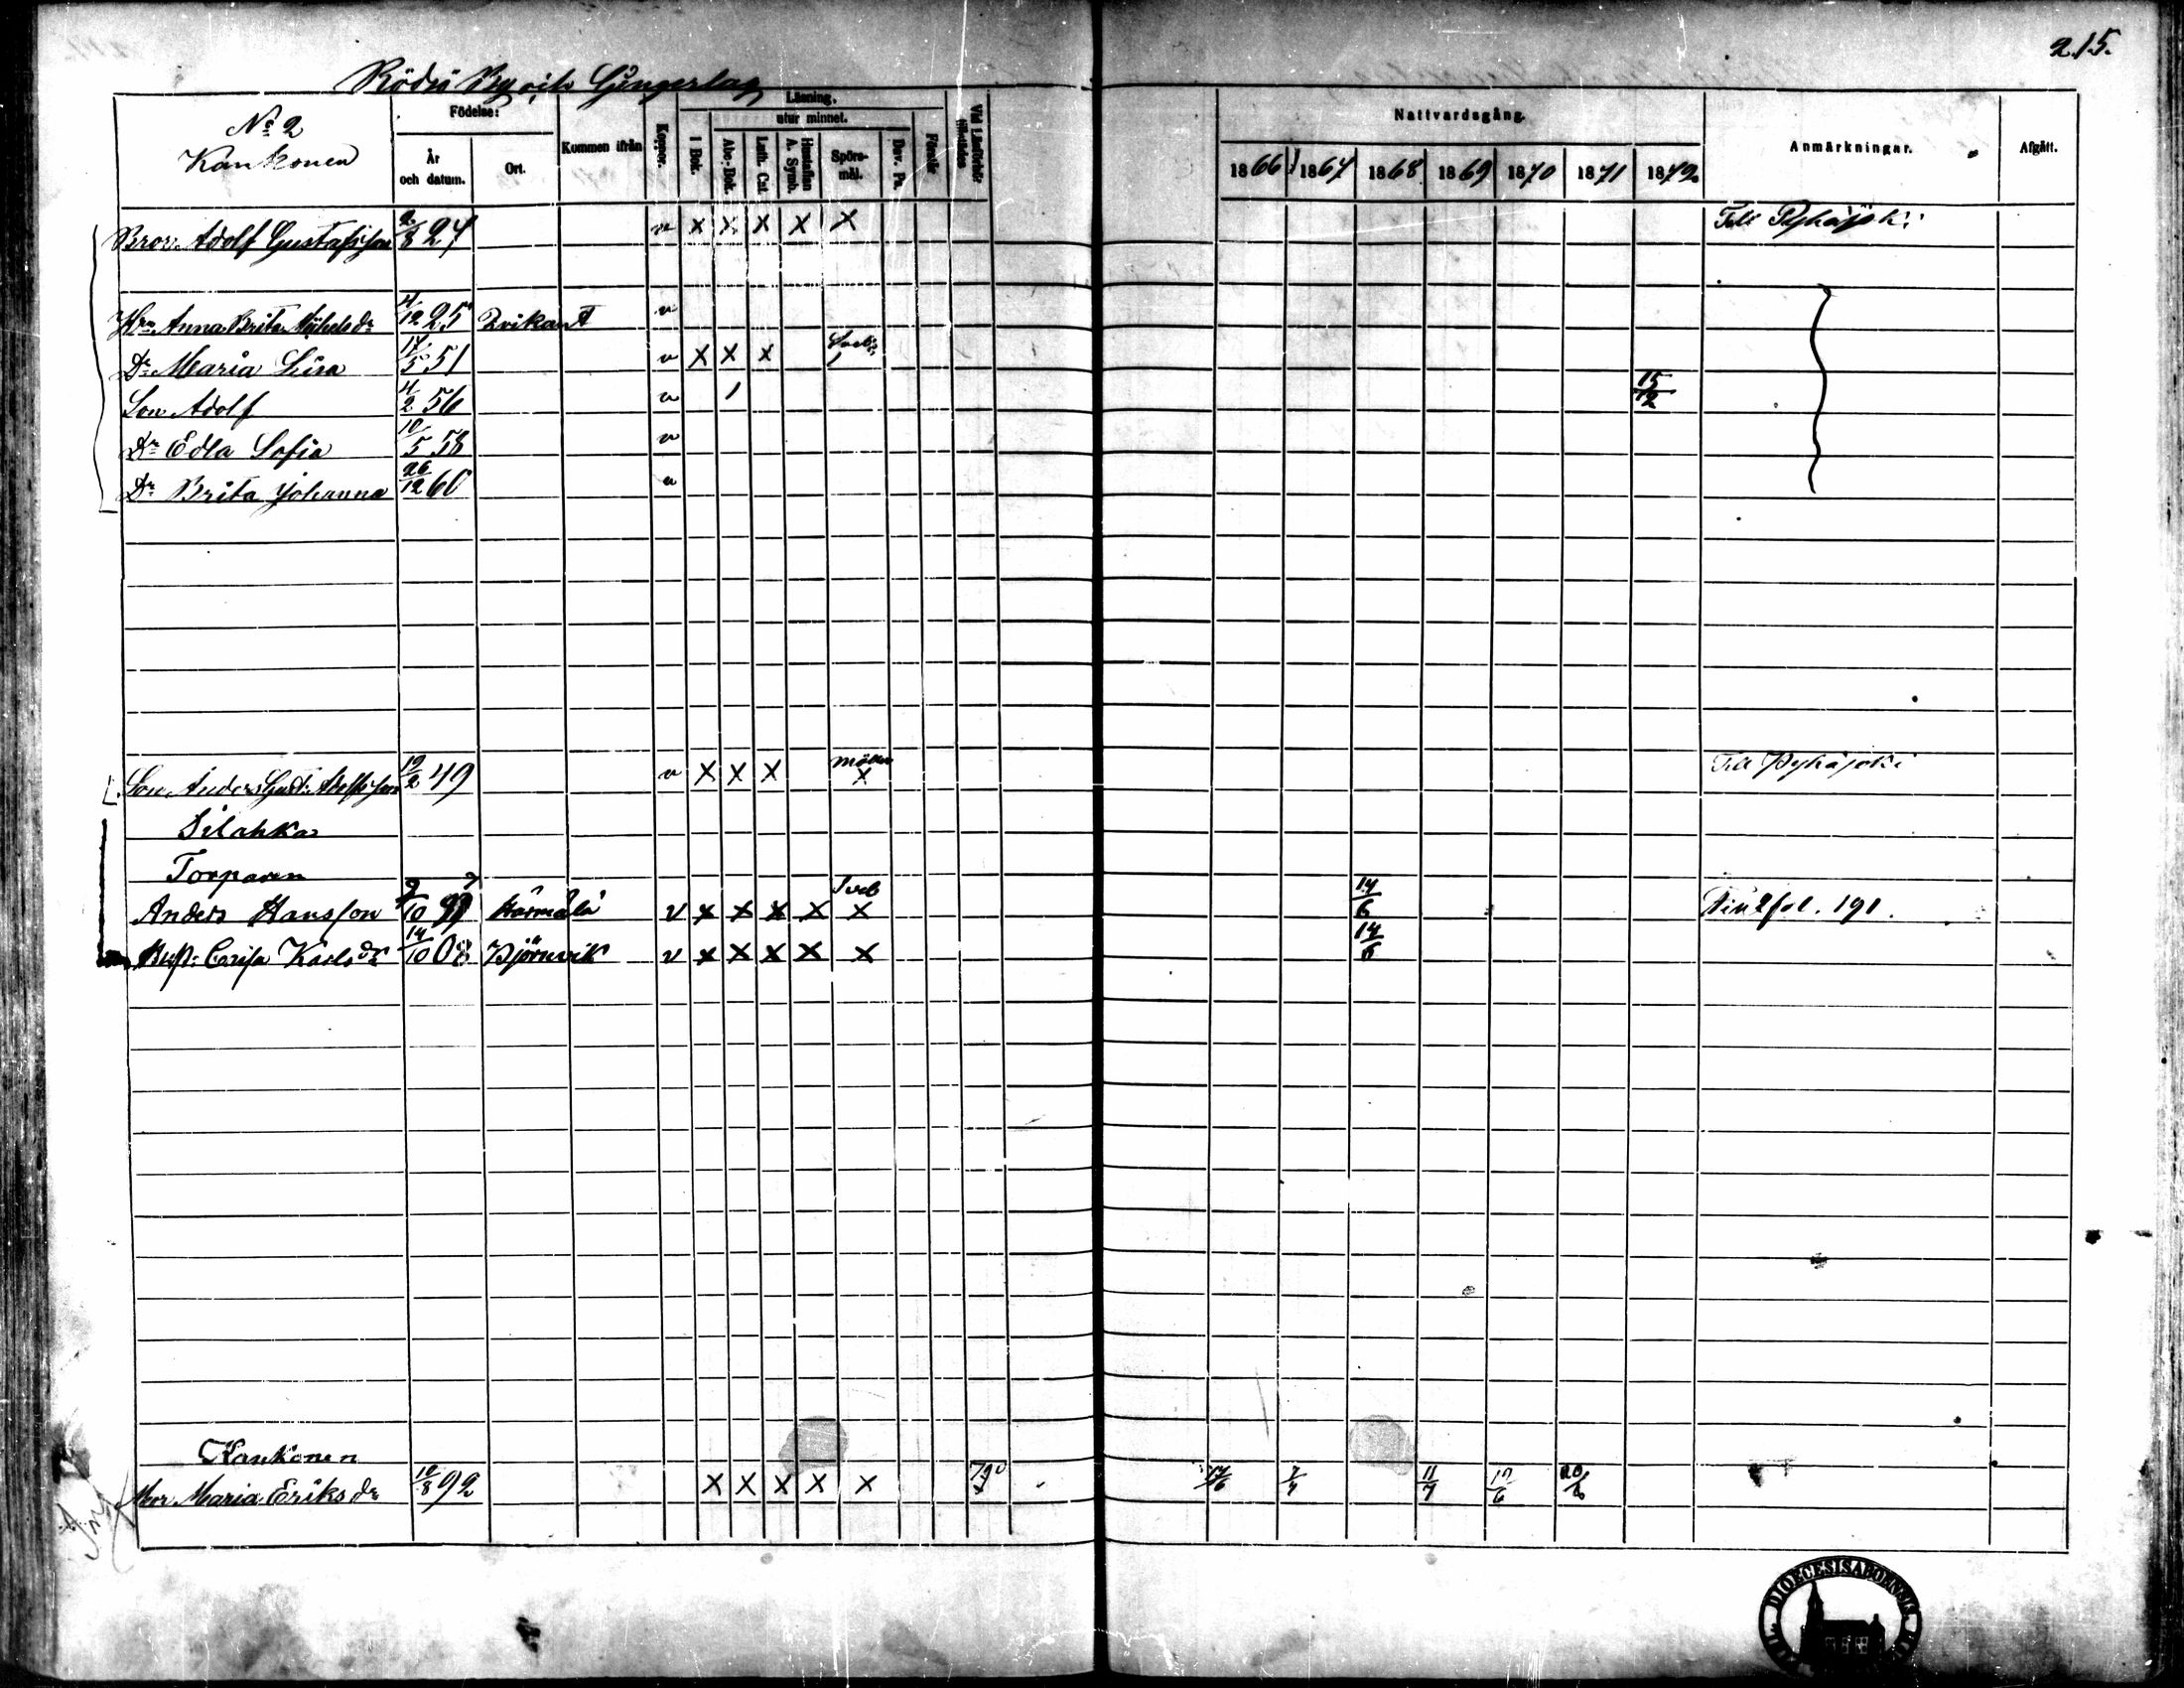 215.
Rödsö By och Ljungarlag
Nº 2
Kankonen
Födelse:
År och datum.
Ort.
Kommen ifrån
Koppor.
Läsning.
utur minnet.
I Bok.
Abc-Bok.
Luth. Cat.
Hustaflan A. Symb.
Spörsmål.
Dav. Ps.
Förstår
Vid Läsförhör tillstädes
Nattvardsgång.
1866 1867 1868 1869 1870 1871 1872
Anmärkningar.
Afgått.
Bror Adolf Gustafsson 2/8 24 v X X X X X Till Pyhäjoki
Hru Anna Brita Michelsdr 4/12 25 v
Dr Maria Lisa 17/5 51 v X X X Sveb. /
Son Adolf 4/2 56 v / 15/12
Dr Edla Sofia 10/5 58 v
Dr Brita Johanna 26/12 60 v
Son Anders Gust. Adolfsson 19/2 49 v X X X X Till Pyhäjoki
Silahka
Torparen
Anders Hansson 9/10 v X X X X Sveb X 14/6 fol. 191.
Hust. Caisa Karlsdr 14/10 08 Björnvik v X X X X X 14/6
Kankonen
Mor Maria Eriksdr 10/8 92 X X X X X 14/6 7/7 11/7 12/6 20/6
DIOECESIS ABOENSIS